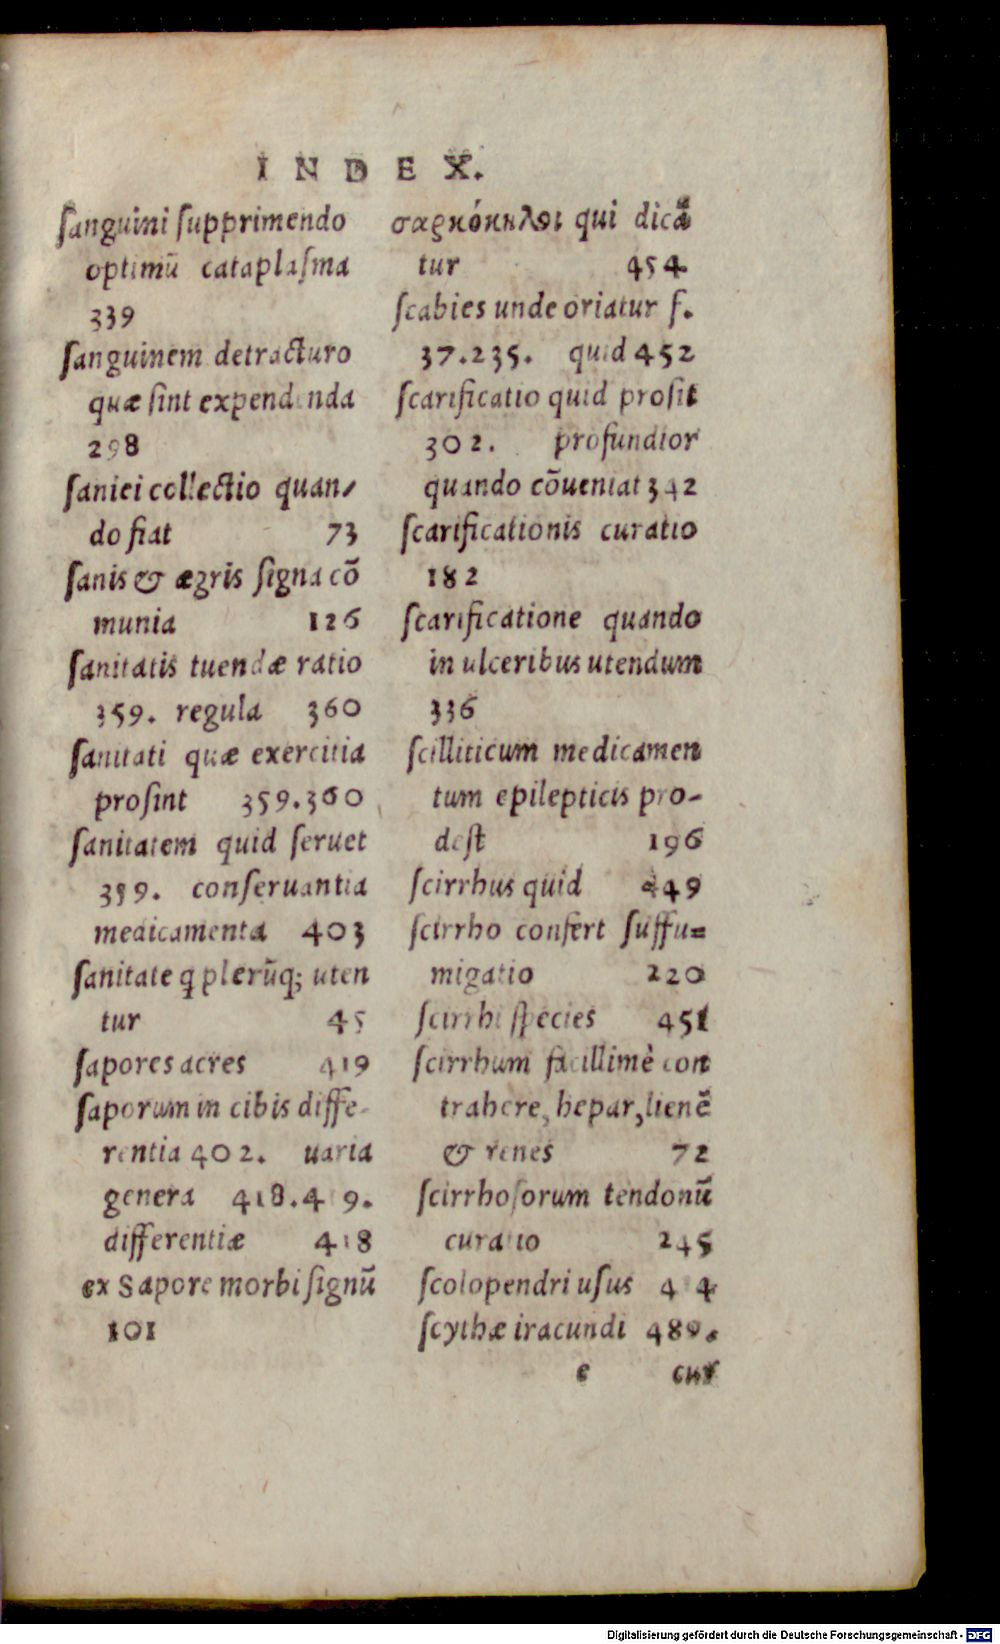 INDEX.
ſanguini ſupprimendo
optimū cataplaſma
339
ſanguinem detracturo
quæ ſint expendenda
298
ſaniei collectio quan-
do fiat 73
ſanis & ægris ſigna cō
munia 126
ſanitatis tuendæ ratio
359. regula 360
ſanitati quæ exercitia
proſint 359.360
ſanitatem quid ſeruet
359. conſeruantia
medicamenta 403
ſanitate q plerūq; uten
tur 45
ſapores acres 419
ſaporum in cibis diffe-
rentia 402. uaria
genera 418.419.
differentiæ 418
ex Sapore morbi ſignū
101
σαρκόκηλοι qui dicā
tur 454
ſcabies unde oriatur f.
37.235. quid 452
ſcarificatio quid proſit
302. profundior
quando cōueniat 342
ſcarificationis curatio
182
ſcarificatione quando
in ulceribus utendum
336
ſcilliticum medicamen
tum epilepticis pro-
deſt 196
ſcirrhus quid 449
ſcirrho confert ſuffu=
migatio 220
ſcirrhi ſpecies 451
ſcirrhum facillimè con
trahere, hepar, lienē
& renes 72
ſcirrhoſorum tendonū
curatio 245
ſcolopendri uſus
ſcythæ iracundi 489.
e cur
Digitalisierung gefördert durch die Deutsche Forschungsgemeinschaft - DFG